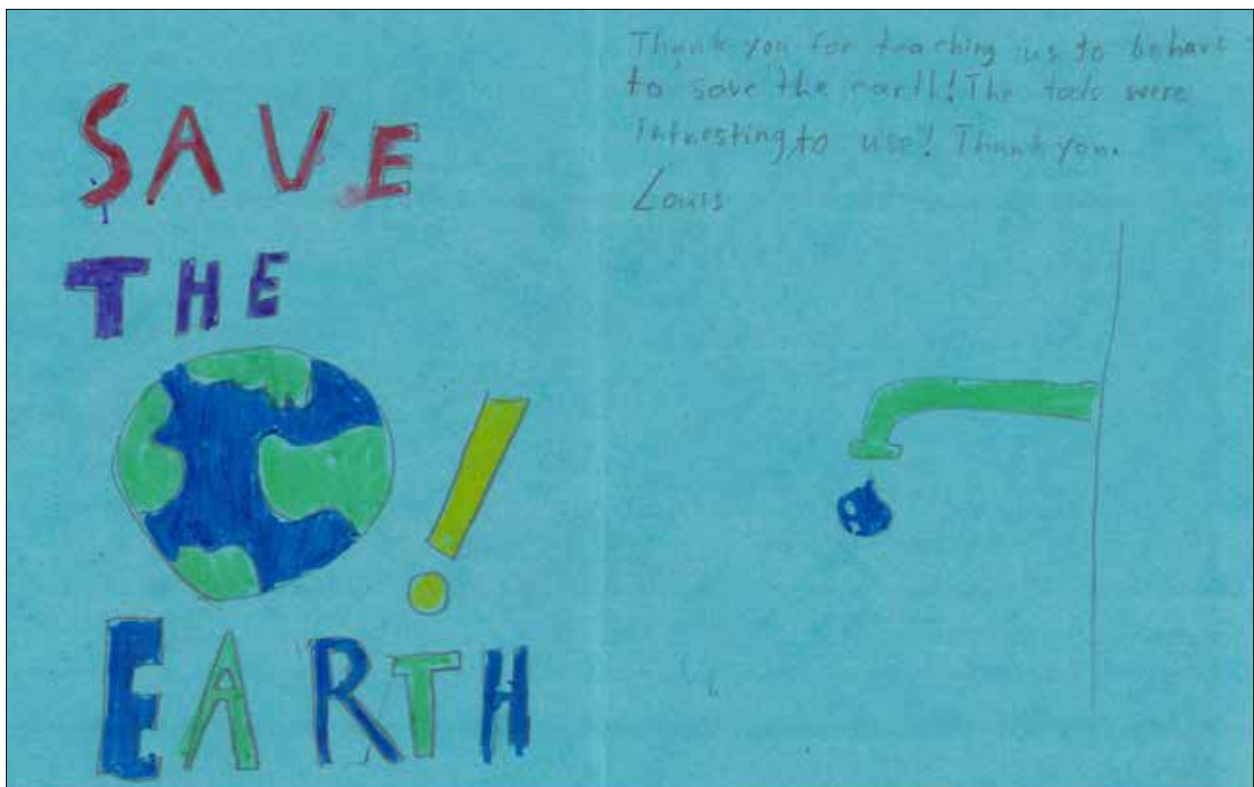 SAVE
THE
!
EARTH
Thank you for teaching us to behave
to save the earth! The tools were
intresting to use! Thank you.
Louis